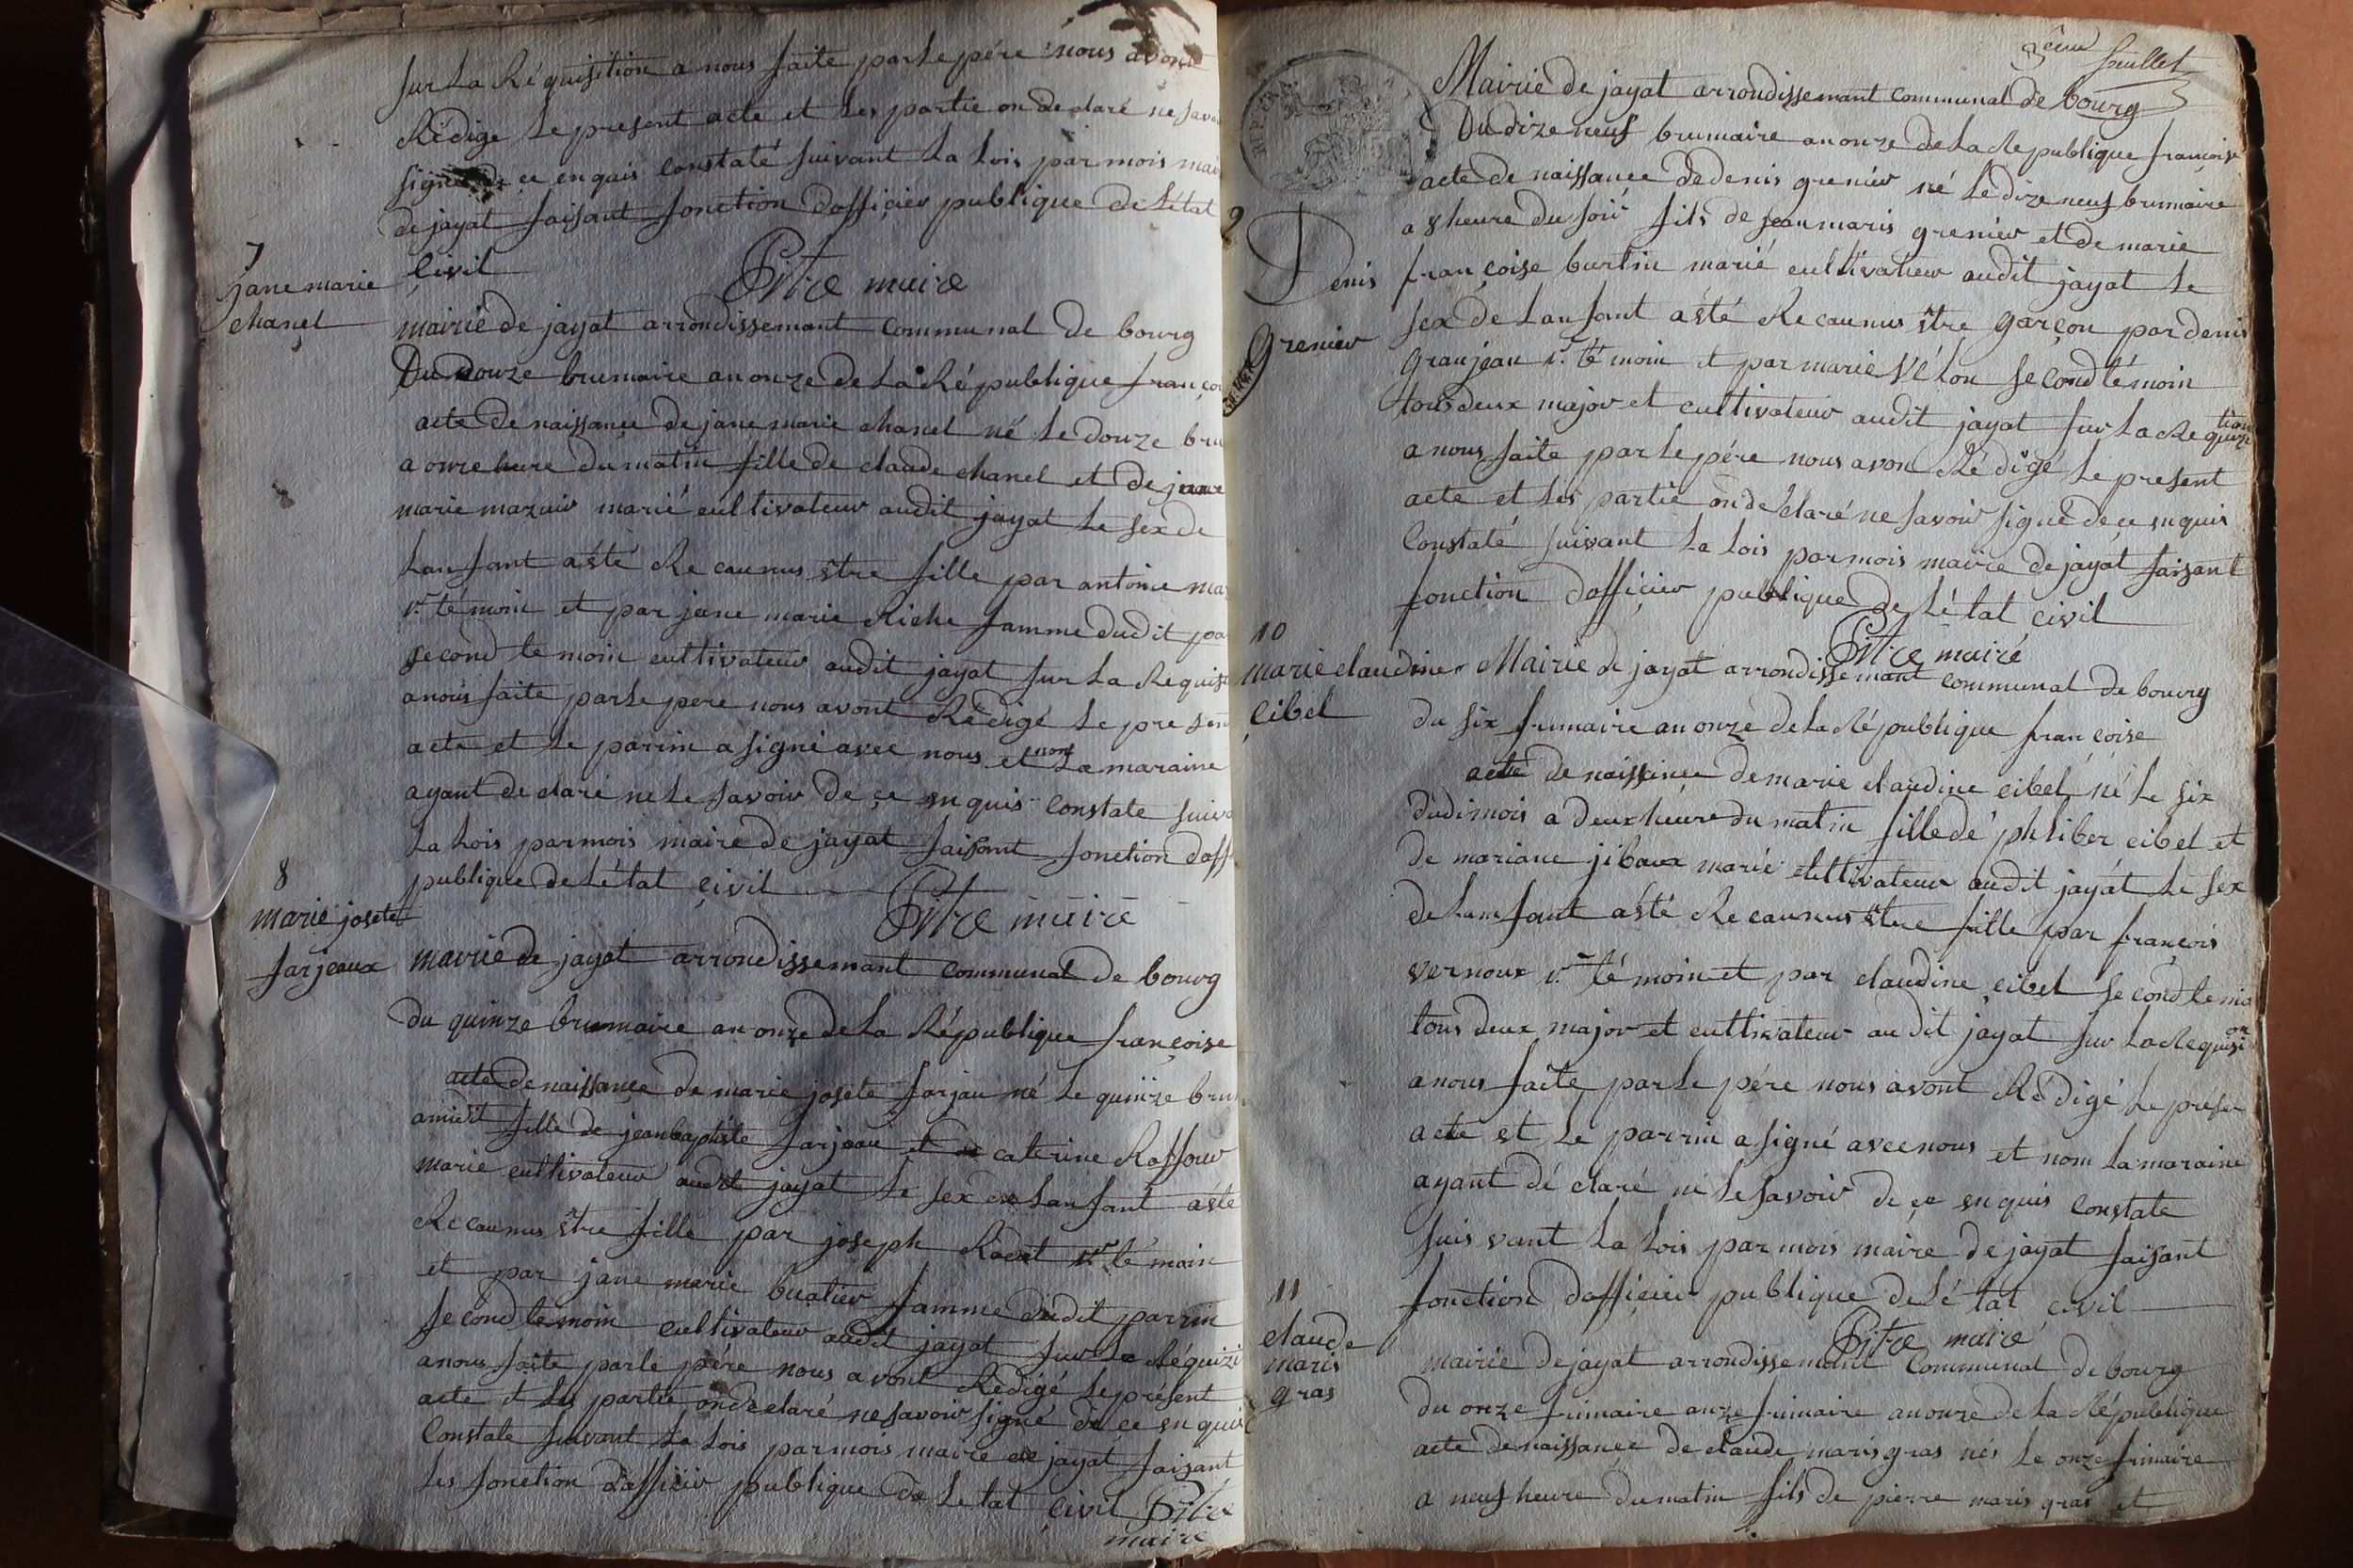 sur la Réquisition a nous faite par le pére nous avont
Rédigé le present acte et les partie on declaré ne savoir
signé de ce enquis constaté suivant la lois par mois maire
de jayat faisant fonction dofficier publique de létat
civil
Pitre maire
7
jane marie
chanel
mairie de jayat arrondissemant communal de bourg
Du douze brumaire an onze de la République françoi
acte de naissance de jane marie chanel né le douze bru
a onze heure du matin fille de claude chanel et de jane
marie mazuir marié cultivateur audit jayat le sex de
lanfant a été Recaunus être fille par antoine ma
1r témoin et par jane marie Riche famme dudit pa
second temoin cultivateur audit jayat sur la Requizi
a nous faite par le pere nous avont Rédigé le presen
acte et le parrin a signé avec nous et non la maraine
ayant declaré ne le savoir de ce enquis constate suiva
la lois par mois maire de jayat faisant fonction doff
publique de létat civil
Pitre maire
8
marie josete
farjeaux
mairie de jayat arrondissemant communal de bourg
du quinze brumaire an onze de la République françoise
acte de naissance de marie josete farjau né le quinze bru
a midit fille de jeanbaptiste farjeau et de caterine Raffour
marié cultivateur audit jayat le sex de lanfant a été
Recaunus être fille par joseph Rodet 1r témoin
et par jane marie buatier famme dudit parrin
second temoin cultivateur audit jayat sur la Réquizi
a nous faite par le pére nous avont Rédigé le présent
acte et les partie on declaré ne savoir signé de ce enquis
Constate suivant la lois par mois maire de jayat faisant
les fonction dofficier publique de letat civil Pitre
maire
3eme feuillet
Mairie de jayat arrondissemant communal de bourg
Du dize neuf brumaire an onze de la Republique françoise
acte de naissance de denis grenier né le dize neuf brumaire
a 8 heure du soir fils de jean maris grenier et de marie
françoise burtin marié cultivateur audit jayat le
sex de lanfant a été Recaunus être garçon par denis
granjean 1r témoin et par marie vélon second témoin
tous deux major et cultivateur audit jayat sur la Requizition
a nous faite par le pére nous avon Rédigé le present
acte et les partie on declaré ne savoir signé de ce enquis
Constaté suivant la lois par mois maire de jayat faisant
fonction dofficier publique de létat civil
Pitre maire
9
Denis
Grenier
10
marie claudine
cibel
Mairie de jayat arrondissemant communal de bourg
du six frimaire an onze de la République françoise
acte de naissance de marie claudine cibel né le six
dudi mois a deux heure du matin fille de phliber cibel et
de mariane jibaux marié cultivateur audit jayat le sex
de lanfant a été Recaunus être fille par françois
vernoux 1r témoin et par claudine cibel second temoi
tous deux major et cultivateur audit jayat sur la Requision
a nous faite par le pére nous avont Rédigé le presen
acte et le parrin a signé avec nous et nom la maraine
ayant déclaré ne le savoir de ce enquis constate
suis vant la lois par mois maire de jayat faisant
fonction dofficier publique de létat civil
Pitre maire
11
claude
maris
gras
mairie de jayat arrondissemant communal de bourg
du onze frimaire onze frimaire an onze de la République
acte de naissance de claude maris gras nés le onze frimaire
a neuf heure du matin fils de pierre maris gras et